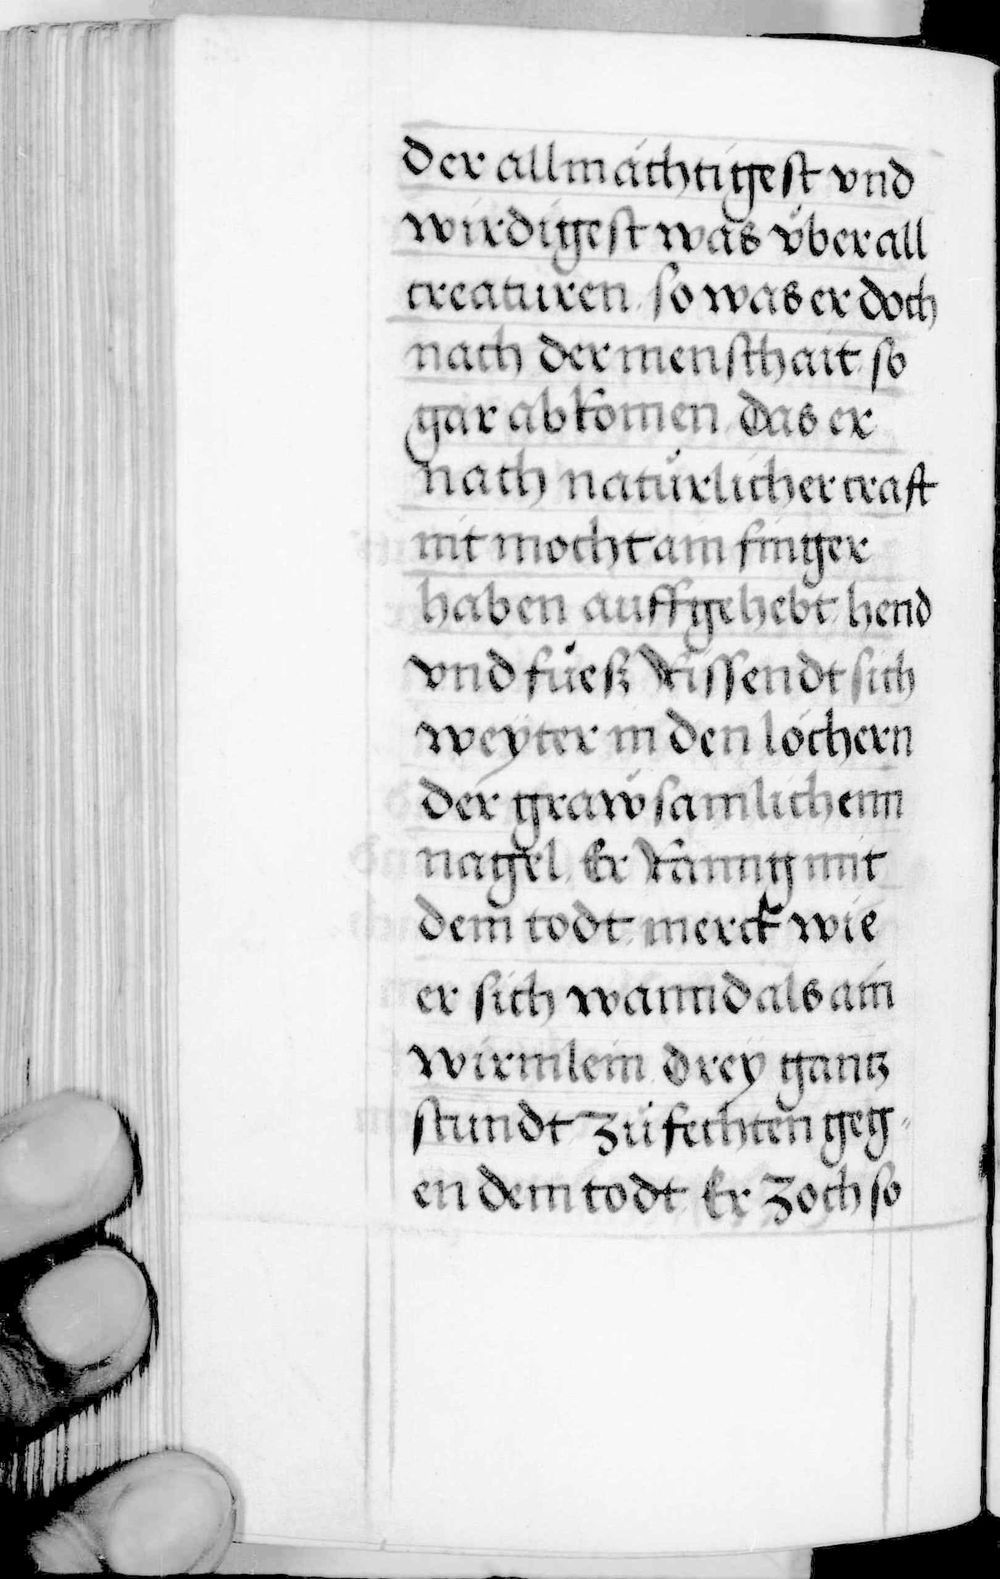 der allmächtigest vnd
wirdigest was v̈ber all
creaturen. so was er doch
nach der menschait so
gar abkomen das er
nach natürlicher craft
nit mocht ain finger
haben auffgehebt hend
vnd füeß Rissendt sich
weyter in den löchern
der grawsamlichenn
nagel. Er Ranng mit
dem todt merck wie
er sich wannd als ain
wirmlein drey gantz
stundt zü fechten geg-
en dem todt Er zoch so